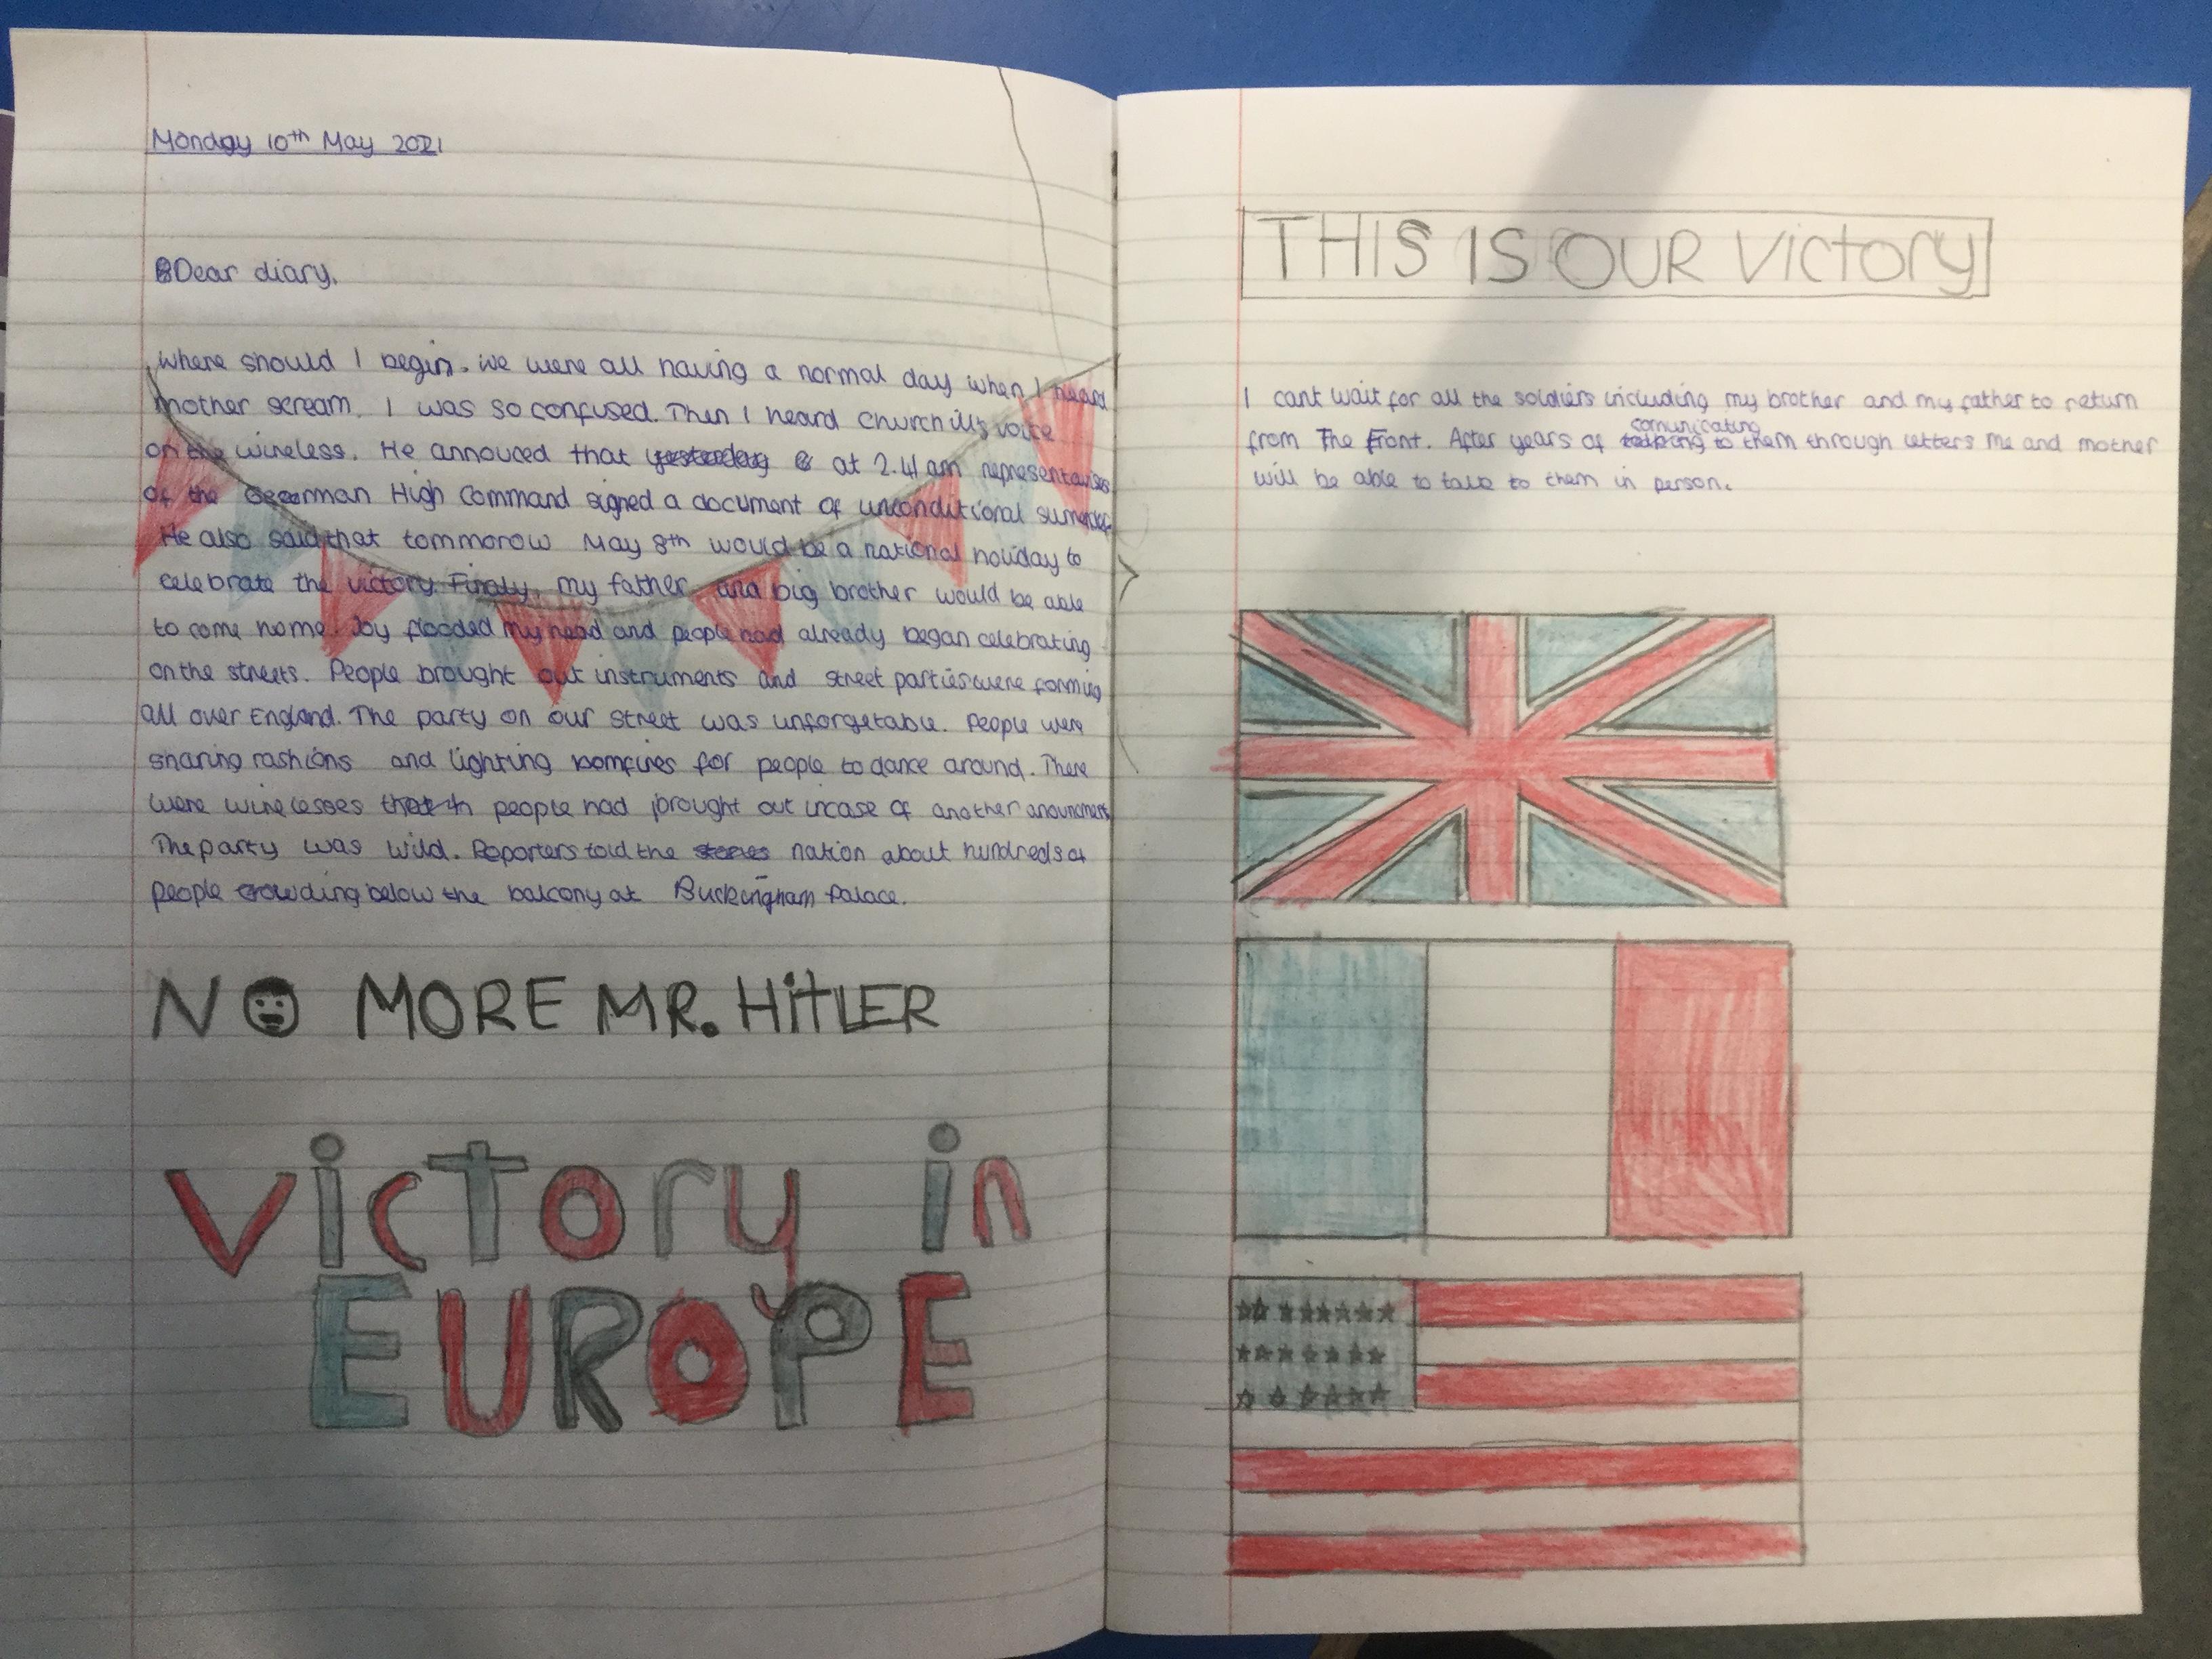 Monday 10th May 2021
Dear diary,
Where should I begin. We were all having a normal day when I heard
mother scream. I was so confused. Then I heard Churchills voice
on the wireless. He annouced that yesterday at 2.41 am representavises
of the German High Command signed a document of unconditional surrender
He also said that tommorow May 8th would be a national holiday to
celebrate the victory. Finaly, my father and big brother would be able
to come home. Joy flooded my head and people had already began celebrating
on the streets. People brought out instruments and street parties were forming
all over England. The party on our street was unforgetable. People were
sharing rashions and lighting bomfires for people to dance around. There
were wirelesses people had brought out incase of another anouncment
The party was wild. Reporters told the stories nation about hundreds of
people crowding below the balcony at Buckingham Palace.
NO MORE MR. HitLER
Victory in
EUROPE
THIS IS OUR Victory
I cant wait for all the soldiers including my brother and my father to return
from The Front. After years of comunicating to them through letters me and mother
will be able to talk to them in person.